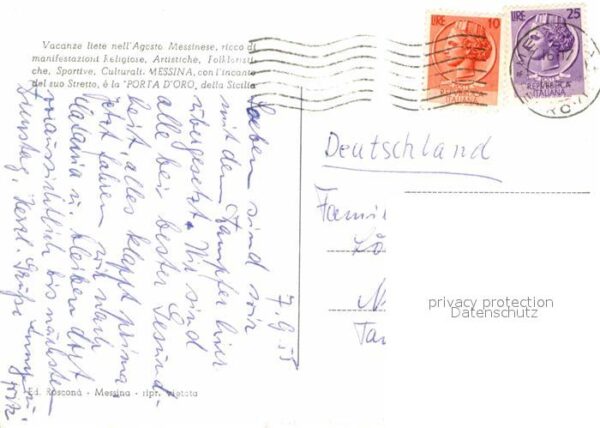 Vacanze liete nell'Agosto Messinese, ricco di
manifestazioni Religiose, Artistiche, Folkloristi
che, Sportive, Culturali. MESSINA, con l'incanto
del suo Stretto, è la "PORTA D'ORO" della Sicilia
LIRE 10
REPUBBLICA
ITALIANA
LIRE 25
REPUBBLICA
ITALIANA
7.9.55
Soeben sind wir
mit dem Dampfer hier
übergesetzt. Wir sind
alle bei bester Gesund-
heit, alles klappt prima.
Jetzt fahren wir nach
Catania u. bleiben dort
voraussichtlich bis nächsten
Dienstag. Herzl. Grüße
Deutschland
Fami
privacy protection
Datenschutz
Ed. Rosconà - Messina - ripr. vietata